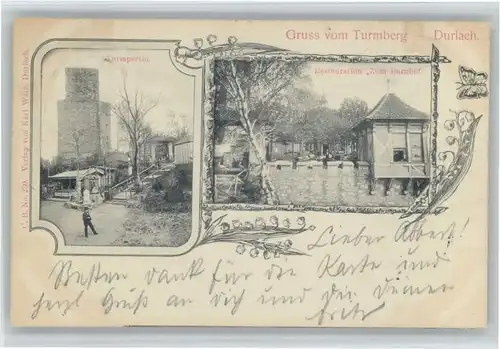 Gruss vom Turmberg — Durlach.
Turmpartie.
Restauration „Zum Burghof“
C. B. No. 259. Verlag von Karl Walz, Durlach.
Lieber Albert!
Besten Dank für die Karte und
herzl Gruß an dich und die deinen
Fritz